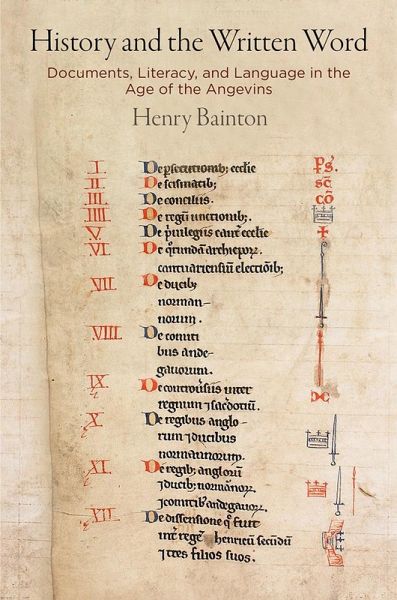 History and the Written Word
Documents, Literacy, and Language in the
Age of the Angevins
Henry Bainton
I. De ꝑsecutionib; ecclie p̄s.
II. De scismatib; sc̄
III. De conciliis. cō
IIII. De regū unctionib;.
V. De p'uilegiis ecclie
VI De q̄rundā archiepoꝝ.
cantuariensiū electiōib;
VII De ducib;
norman-
norum.
VIII. De comiti
bus ande-
gauorum.
IX De controu'siis inter
regnum ⁊ sac̄dotiū.
X De regibus anglo-
rum ⁊ ducibus
normannorum.
XI. De regib; anglorū
⁊ ducib; normānoꝝ
⁊ comitib' andegauoꝝ.
XII De dissensione q̄ fuit
int' regē henricū sēdū
⁊ tres filios suos.